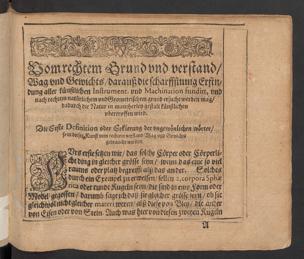 Vom rechtem Grund vnd verstand /
Wag vnd Gewichts / darauß die scharffsinnig Erfin-
dung aller künstlichen Instrument, vnd Machination fundirt, vnd
nach rechtem natürlichem vnd Geometrischem grund ersucht werden mag /
dadurch die Natur in mancherley gestalt künstlichen
vbertroffen wird.
Die Erste Definition oder Erklerung der ungewönlichen wörter /
so in dieser Kunst vom rechtem verstand Wag vnd Gewichts
gebraucht werden.
Fürs erste setzen wir / das solche Cörper oder Cörperli-
che ding in gleicher grösse seyn / wenn das eine so viel
raums oder platz begreifft als das ander. Solches
durch ein Exempel zu erweisen / stellen 2. corpora Sphæ
rica oder runde Kugeln seyn / die sind in eine Form oder
Model gegossen / darumb sage ich daß sie gleicher grösse seyn / ob sie
gleichwol nicht gleicher materi weren / als diese von Bley / die ander
von Eisen oder von Stein. Auch was hier von diesen zweyen Kugeln
A